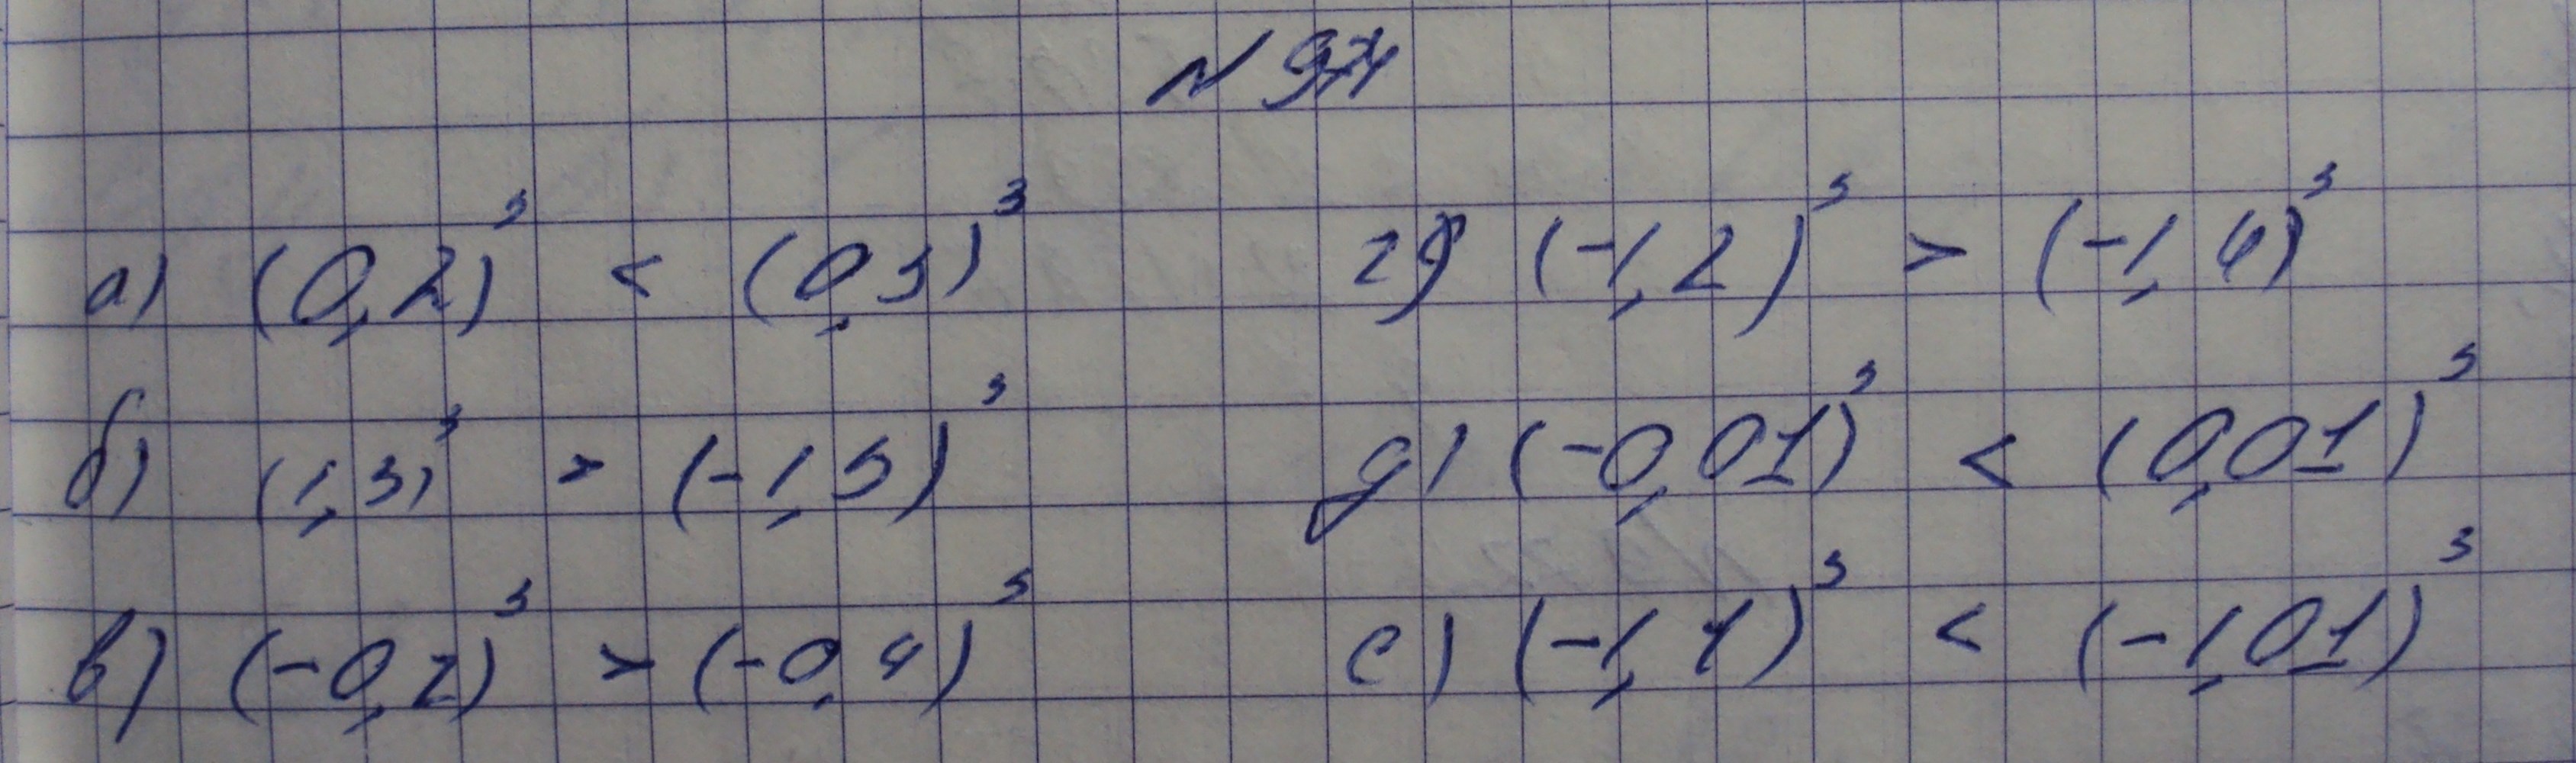 N 974
а) (0,2)³ < (0,3)³
б) (1,3)³ > (-1,5)³
в) (-0,2)³ > (-0,4)³
г) (-1,2)³ > (-1,4)³
д) (-0,01)³ < (0,01)³
е) (-1,1)³ < (-1,01)³